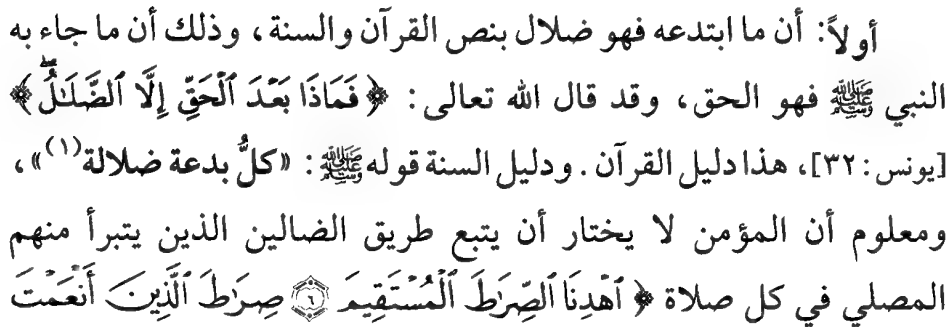 أولاً: أن ما ابتدعه فهو ضلال بنص القرآن والسنة، وذلك أن ما جاء به
النبي ﷺ فهو الحق، وقد قال الله تعالى: ﴿ فَمَاذَا بَعْدَ ٱلْحَقِّ إِلَّا ٱلضَّلَـٰلُۖ ﴾
[يونس: ٣٢]، هذا دليل القرآن. ودليل السنة قوله ﷺ: «كلُّ بدعة ضلالة(١)»،
ومعلوم أن المؤمن لا يختار أن يتبع طريق الضالين الذين يتبرأ منهم
المصلي في كل صلاة ﴿ ٱهْدِنَا ٱلصِّرَٰطَ ٱلْمُسْتَقِيمَ ۝٦ صِرَٰطَ ٱلَّذِينَ أَنْعَمْتَ